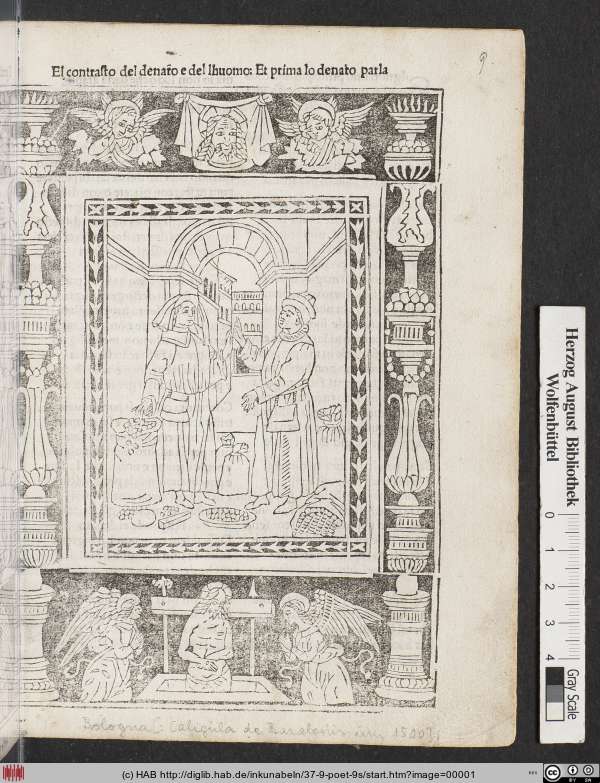 El contrasto del denaro e del lhuomo: Et prima lo denaro parla
9.
Bologna C. Caligula de Bazaleriis um 1500
Herzog August Bibliothek
Wolfenbüttel
0
1
2
3
4
Gray Scale
(c) HAB http://diglib.hab.de/inkunabeln/37-9-poet-9s/start.htm?image=00001